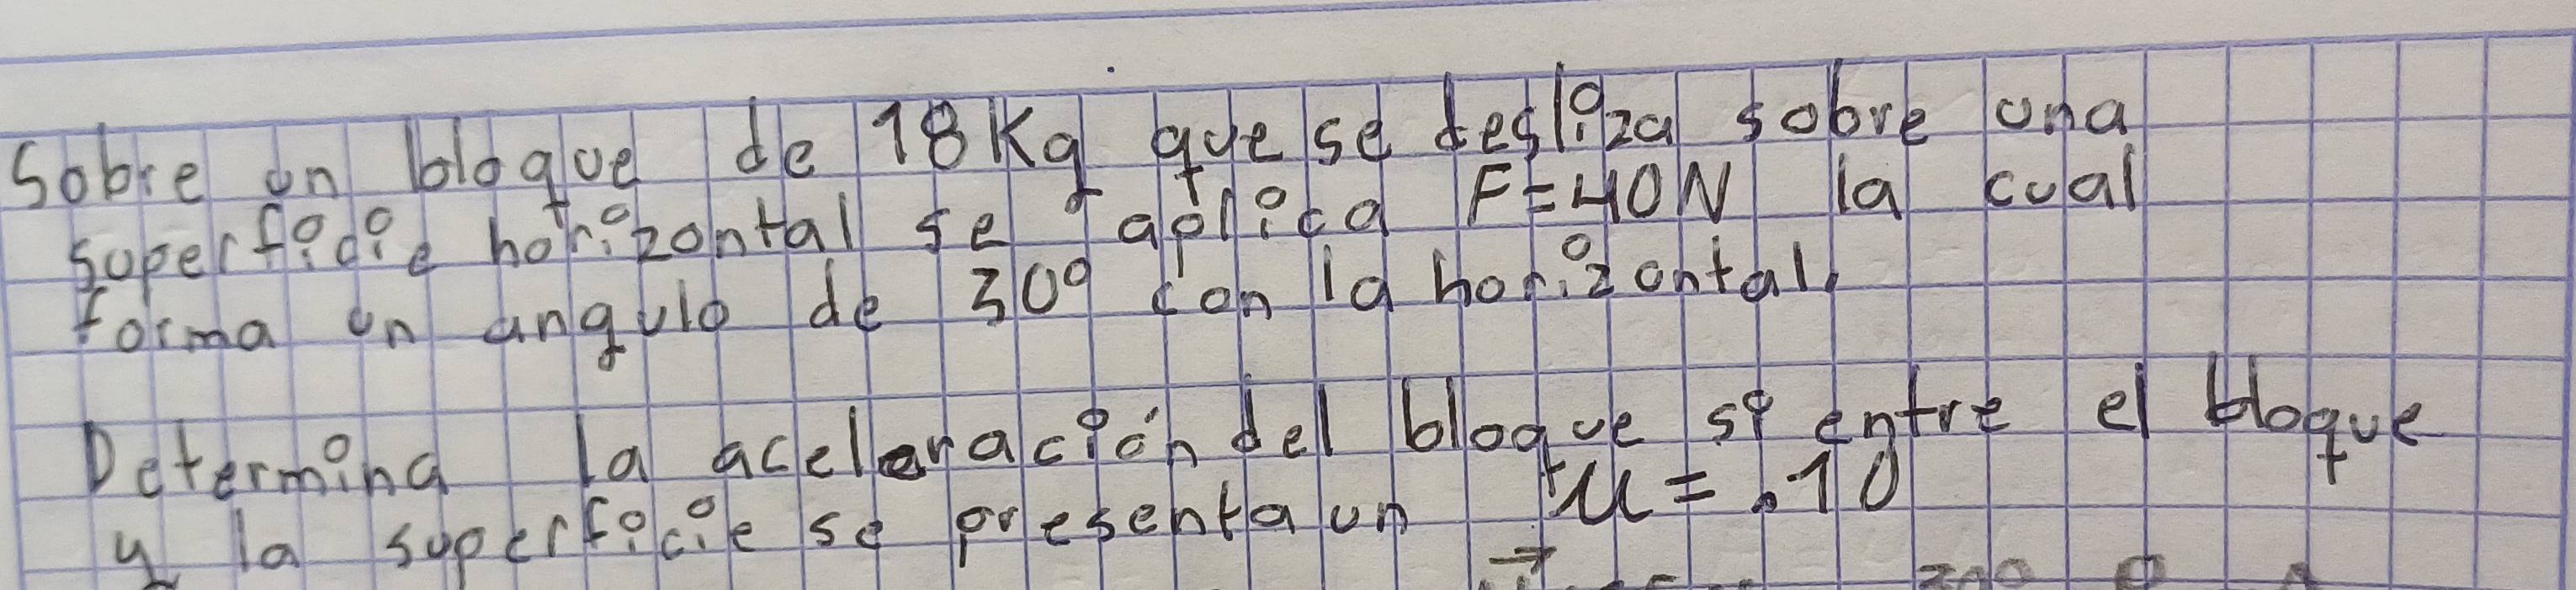 Sobre un bloque de 18Kg que se desliza sobre una
superficie horizontal se aplica F=40N la cual
forma un angulo de 30° con la horizontal.
Determina la aceleración del bloque si entre el bloque
y la superficie se presenta un μ=.10